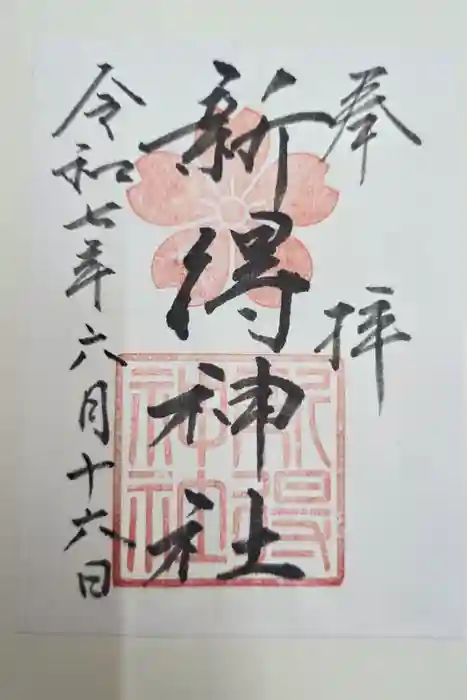 奉拝
新得神社
新得
神社
令和七年六月十六日